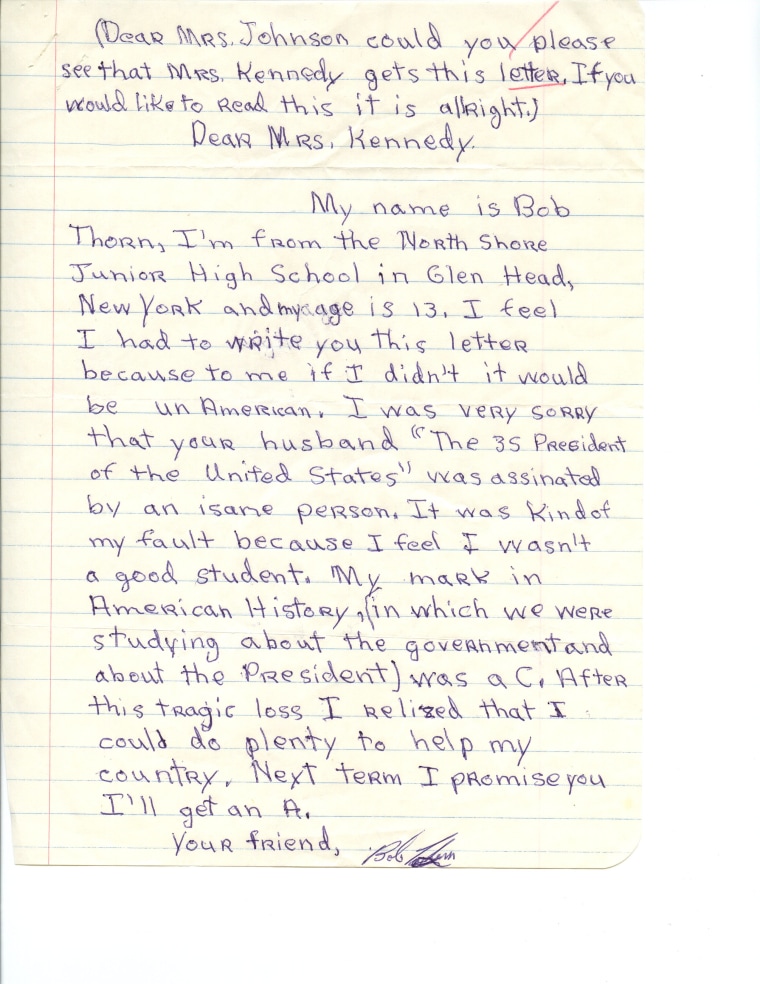 (Dear Mrs. Johnson could you please
see that Mrs. Kennedy gets this letter. If you
would like to read this it is allright.)
Dear Mrs. Kennedy.
My name is Bob
Thorn, I'm from the North Shore
Junior High School in Glen Head,
New York and my age is 13. I feel
I had to write you this letter
because to me if I didn't it would
be un American. I was very sorry
that your husband "The 35 President
of the United States" was assinated
by an isane person. It was kind of
my fault because I feel I wasn't
a good student. My mark in
American History, (in which we were
studying about the government and
about the President) was a C. After
this tragic loss I relized that I
could do plenty to help my
country. Next term I promise you
I'll get an A.
Your friend,
Bob Thorn